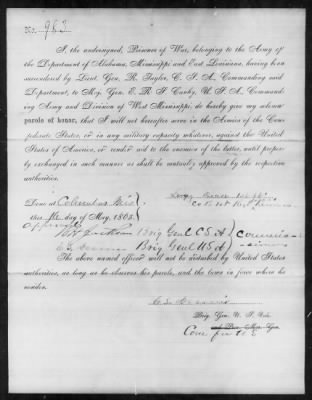 No. 963
I, the undersigned, Prisoner of War, belonging to the Army of
the Department of Alabama, Mississippi and East Louisiana, having been
surrendered by Lieut. Gen. R. Taylor, C. S. A., Commanding said
Department, to Maj. Gen. E. R. S. Canby, U. S. A., Command-
ing Army and Division of West Mississippi, do hereby give my solemn
parole of honor, that I will not hereafter serve in the Armies of the Con-
federate States, or in any military capacity whatever, against the United
States of America, or render aid to the enemies of the latter, until proper-
ly exchanged in such manner as shall be mutually approved by the respective
authorities.
Done at Columbus Miss
this day of May, 1865.
Approved
Brig Genl C S A
Brig Genl U S A
Commis-
sioners
The above named officer will not be disturbed by United States
authorities, as long as he observes his parole, and the laws in force where he
resides.
Brig. Gen. U. S. Vols
Com for U S